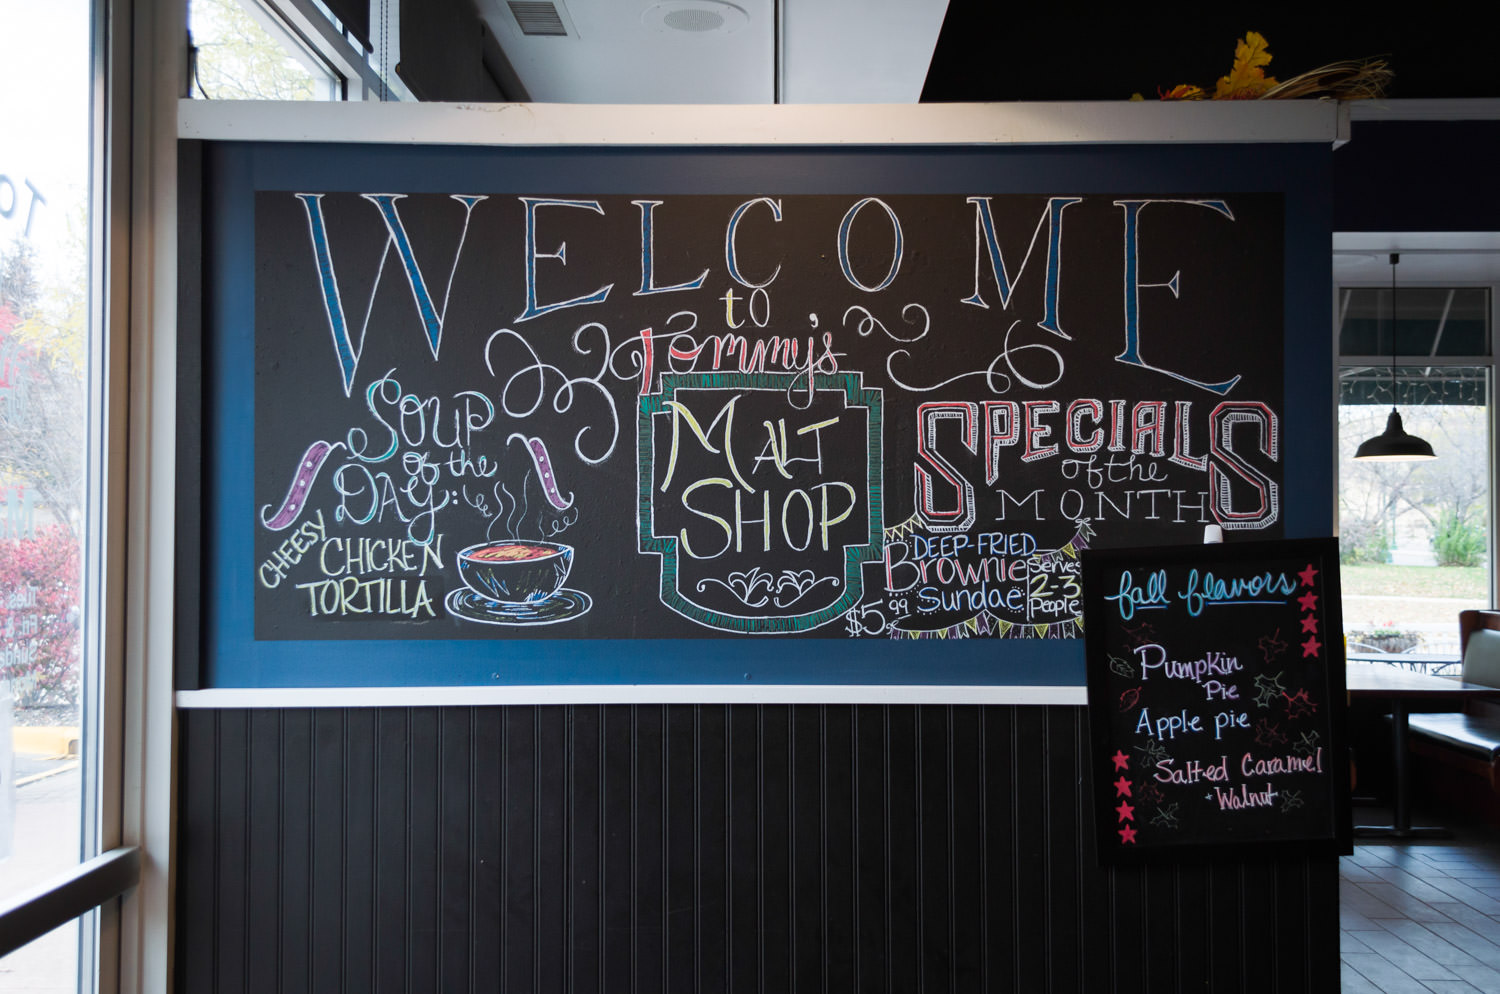 WELCOME
to
Tommy's
MALT
SHOP
SOUP
of the
DAY:
CHEESY
CHICKEN
TORTILLA
SPECIALS
of the
MONTH
DEEP-FRIED
Brownie
Sundae
$5.99
Serves
2-3
People
fall flavors
Pumpkin
Pie
Apple pie
Salted Caramel
+ Walnut